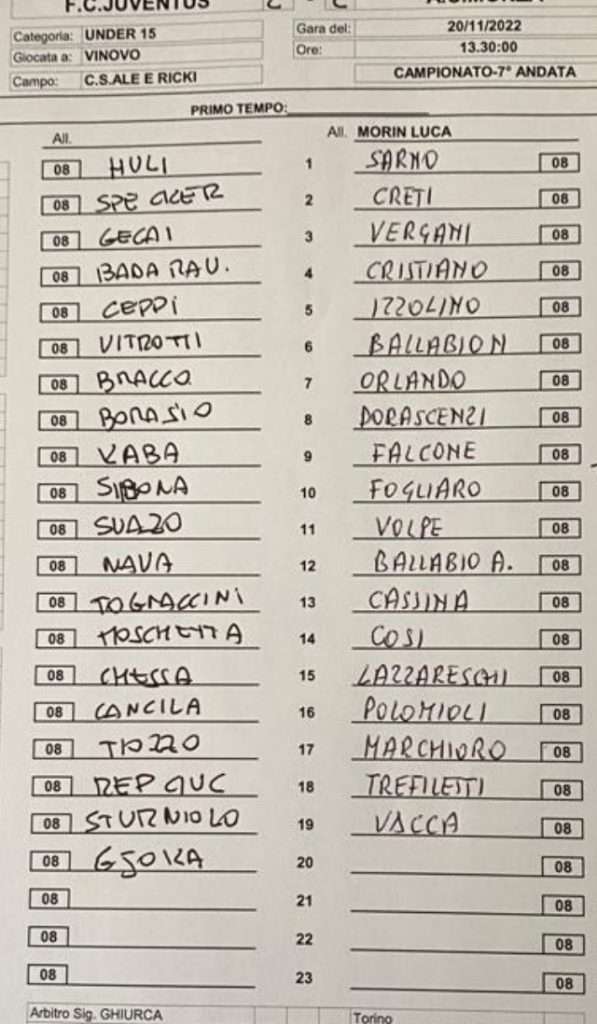 F.C.JUVENTUS
Categoria: UNDER 15 Gara del: 20/11/2022
Giocata a: VINOVO Ore: 13.30:00
Campo: C.S.ALE E RICKI CAMPIONATO-7° ANDATA
PRIMO TEMPO:
All. All. MORIN LUCA
08 HULI 1 SARNO 08
08 2 CRETI 08
08 GECAI 3 VERGANI 08
08 BADARAU. 4 CRISTIANO 08
08 CEPPI 5 IZZOLINO 08
08 VITROTTI 6 BALLABIO N 08
08 BRACCO 7 ORLANDO 08
08 BORASIO 8 DORASCENZI 08
08 KABA 9 FALCONE 08
08 SIBONA 10 FOGLIARO 08
08 SUAZO 11 VOLPE 08
08 NAVA 12 BALLABIO A. 08
08 TOGNACCINI 13 CASSINA 08
08 MOSCHETTA 14 COSI 08
08 CHESSA 15 LAZZARESCHI 08
08 CANCILA 16 POLOMIOLI 08
08 TIOZZO 17 MARCHIORO 08
08 18 TREFILETTI 08
08 STURNIOLO 19 VACCA 08
08 GJOKA 20 08
08 21 08
08 22 08
08 23 08
Arbitro Sig. GHIURCA Torino